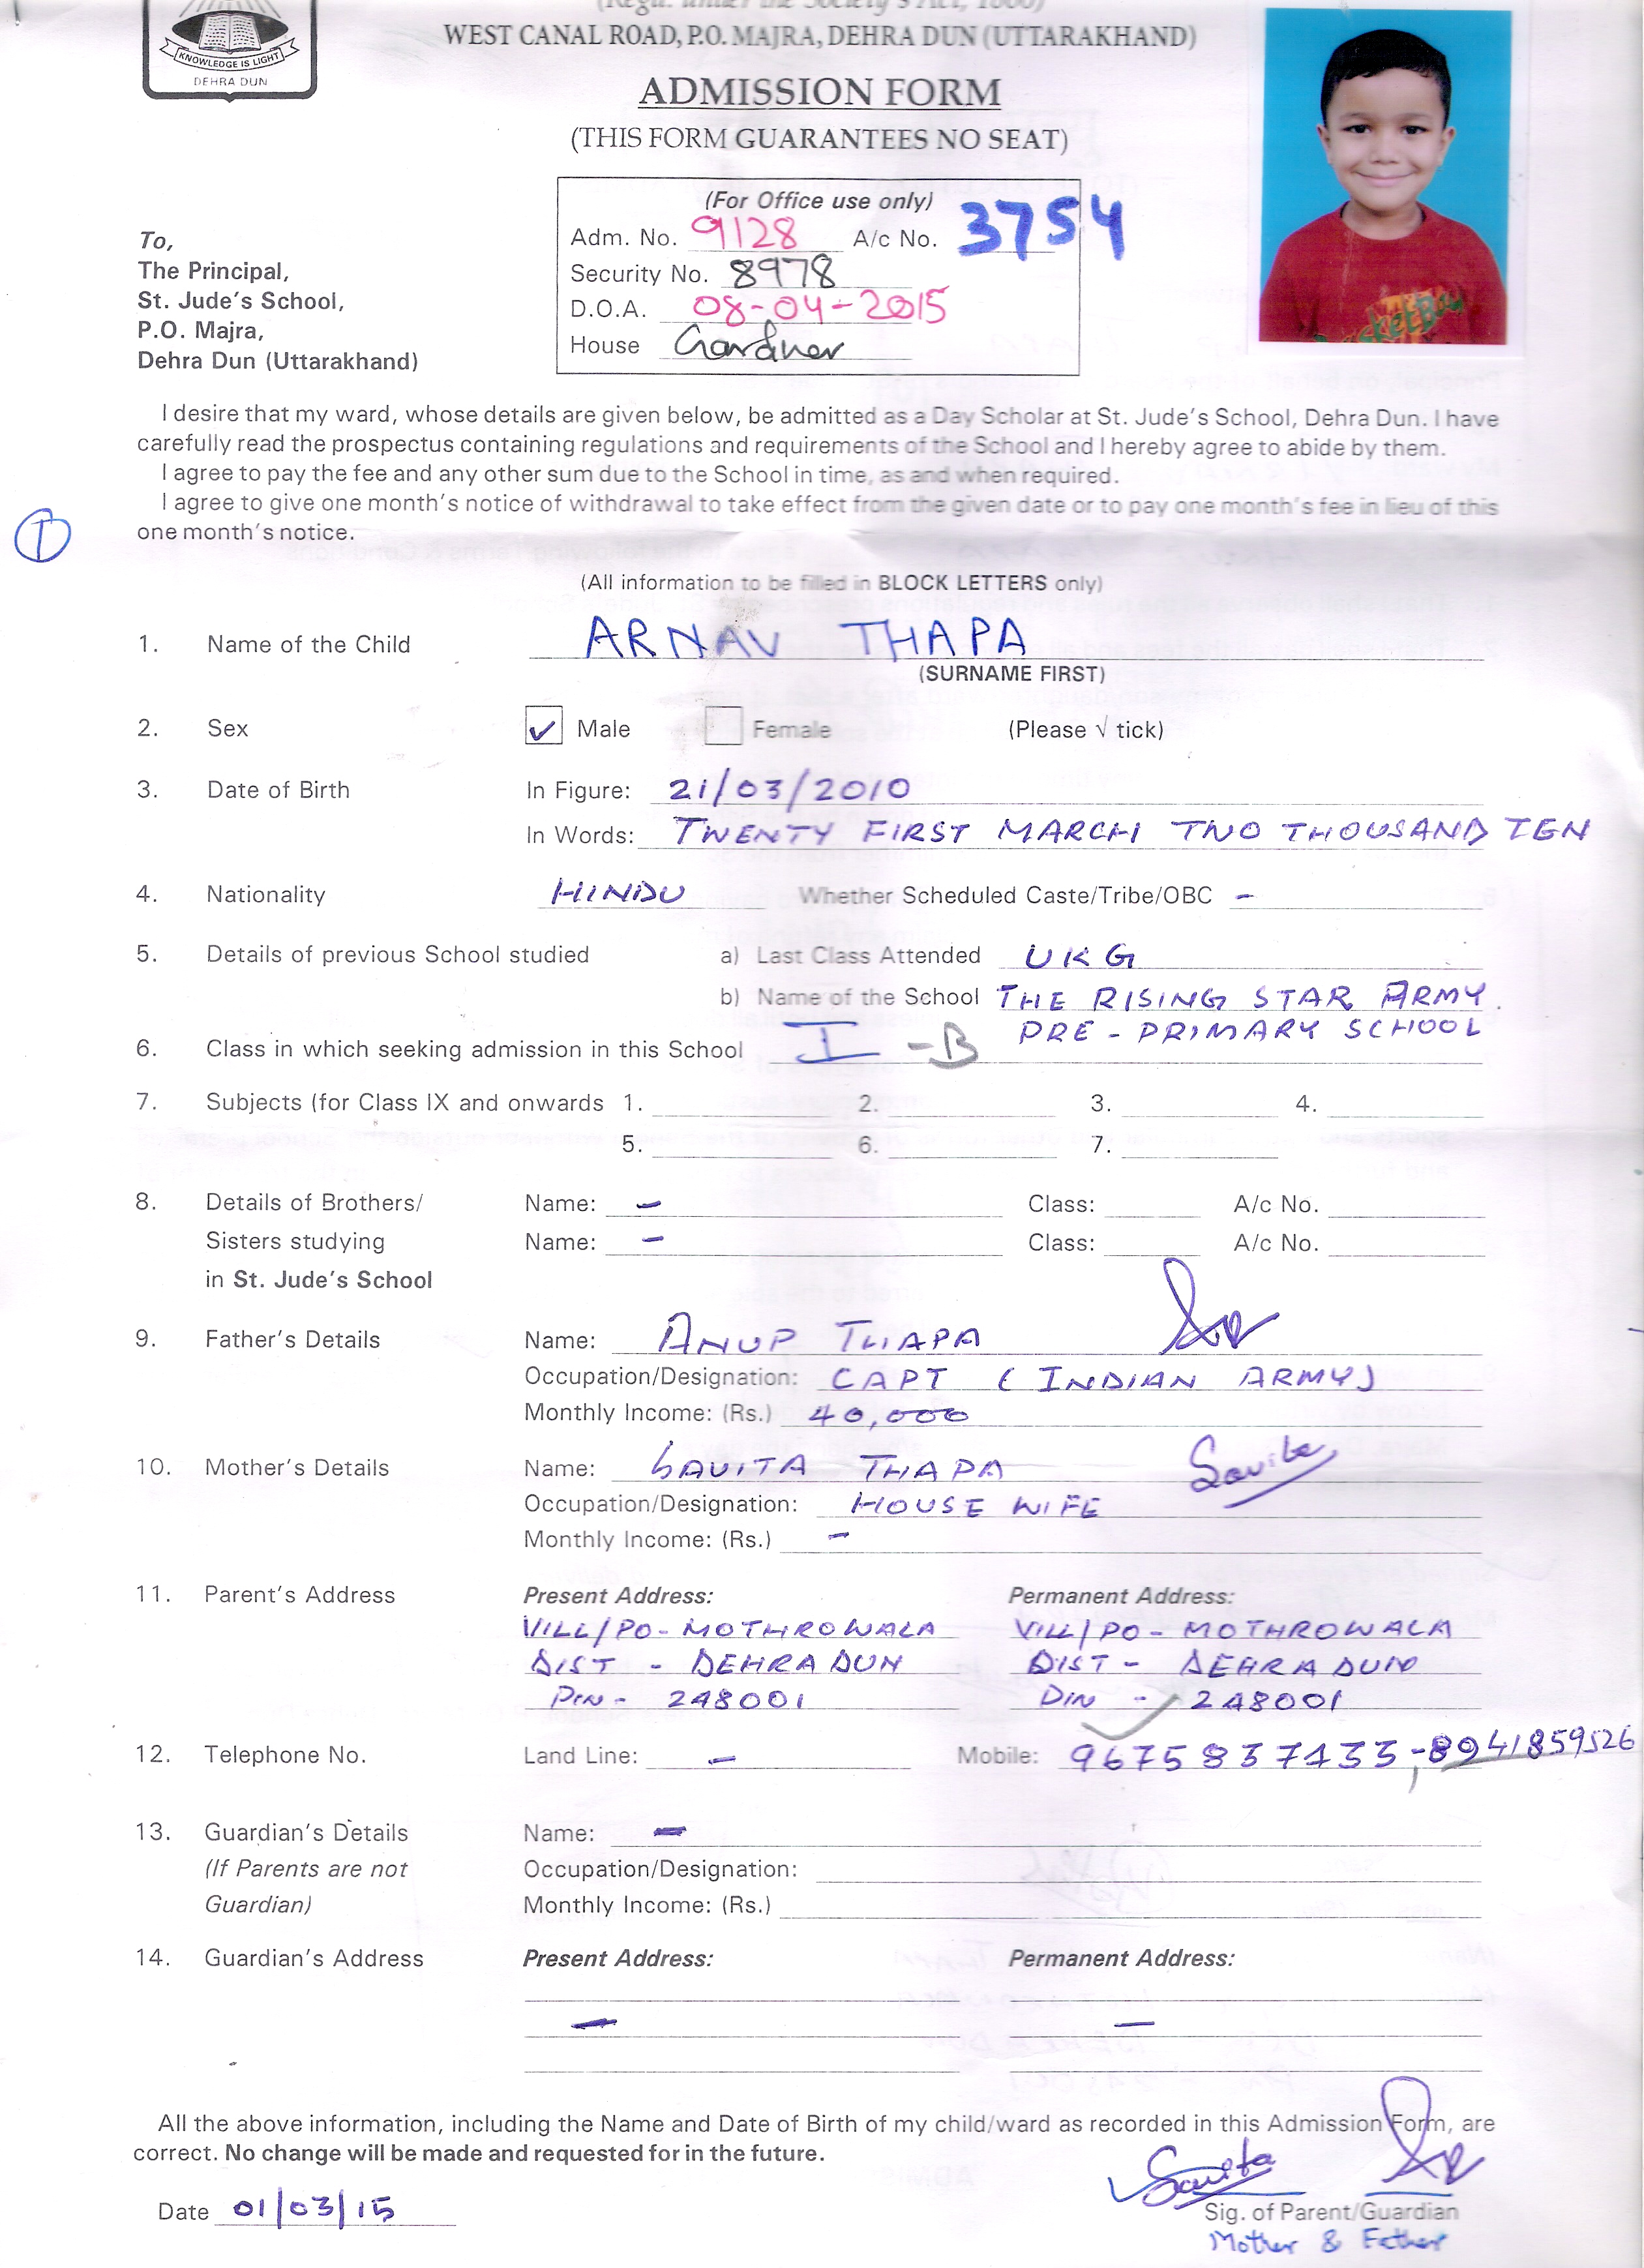 (Regd. under the Society's Act, 1860)
WEST CANAL ROAD, P.O. MAJRA, DEHRA DUN (UTTARAKHAND)
KNOWLEDGE IS LIGHT
DEHRA DUN
ADMISSION FORM
(THIS FORM GUARANTEES NO SEAT)
(For Office use only)
Adm. No. 9128 A/c No. 3754
Security No. 8978
D.O.A. 08-04-2015
House Gardner
To,
The Principal,
St. Jude's School,
P.O. Majra,
Dehra Dun (Uttarakhand)
I desire that my ward, whose details are given below, be admitted as a Day Scholar at St. Jude's School, Dehra Dun. I have
carefully read the prospectus containing regulations and requirements of the School and I hereby agree to abide by them.
I agree to pay the fee and any other sum due to the School in time, as and when required.
I agree to give one month's notice of withdrawal to take effect from the given date or to pay one month's fee in lieu of this
one month's notice.
(All information to be filled in BLOCK LETTERS only)
1. Name of the Child ARNAV THAPA
(SURNAME FIRST)
2. Sex ✓ Male Female (Please √ tick)
3. Date of Birth In Figure: 21/03/2010
In Words: TWENTY FIRST MARCH TWO THOUSAND TEN
4. Nationality HINDU Whether Scheduled Caste/Tribe/OBC -
5. Details of previous School studied a) Last Class Attended UKG
b) Name of the School THE RISING STAR ARMY
PRE - PRIMARY SCHOOL
6. Class in which seeking admission in this School I - B
7. Subjects (for Class IX and onwards 1. 2. 3. 4.
5. 6. 7.
8. Details of Brothers/ Name: - Class: A/c No.
Sisters studying Name: - Class: A/c No.
in St. Jude's School
9. Father's Details Name: ANUP THAPA
Occupation/Designation: CAPT (INDIAN ARMY)
Monthly Income: (Rs.) 40,000
10. Mother's Details Name: SAVITA THAPA Savita
Occupation/Designation: HOUSE WIFE
Monthly Income: (Rs.) -
11. Parent's Address Present Address: Permanent Address:
VILL/PO - MOTHROWALA VILL/PO - MOTHROWALA
DIST - DEHRADUN DIST - DEHRADUN
PIN - 248001 PIN - 248001
12. Telephone No. Land Line: - Mobile: 9675837433, -8941859526
13. Guardian's Details Name: -
(If Parents are not Occupation/Designation:
Guardian) Monthly Income: (Rs.)
14. Guardian's Address Present Address: Permanent Address:
- -
All the above information, including the Name and Date of Birth of my child/ward as recorded in this Admission Form, are
correct. No change will be made and requested for in the future.
Savita
Date 01/03/15 Sig. of Parent/Guardian
Mother & Father